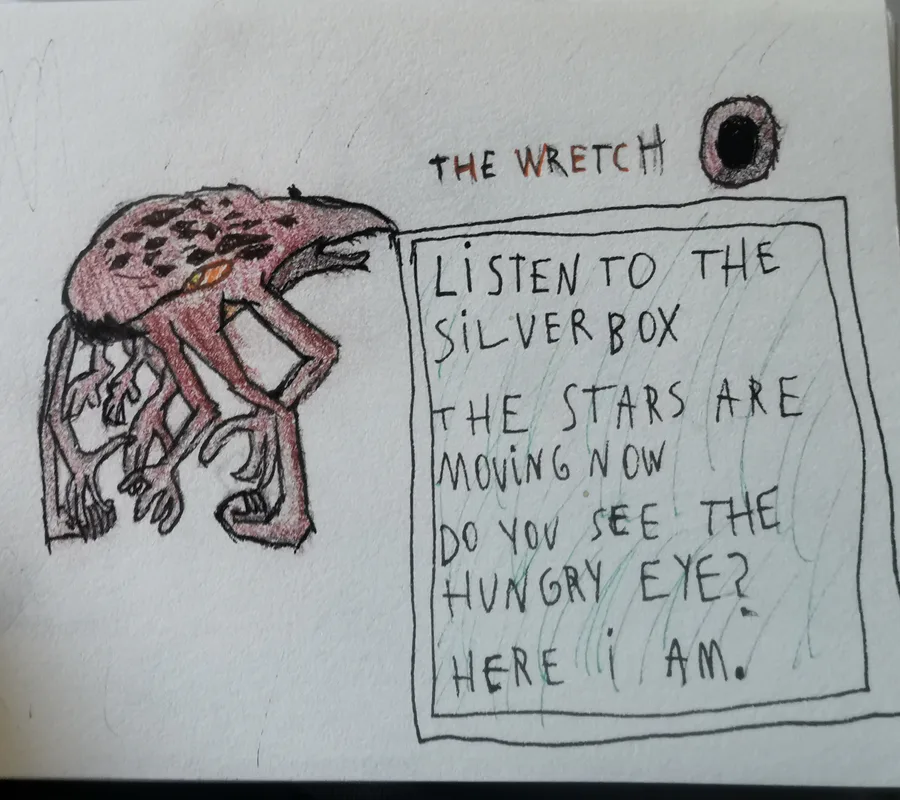 THE WRETCH
LiSTEN TO THE
SiLVER BOX
THE STARS ARE
MOViNG NOW
DO YOU SEE THE
HUNGRY EYE?
HERE i AM.